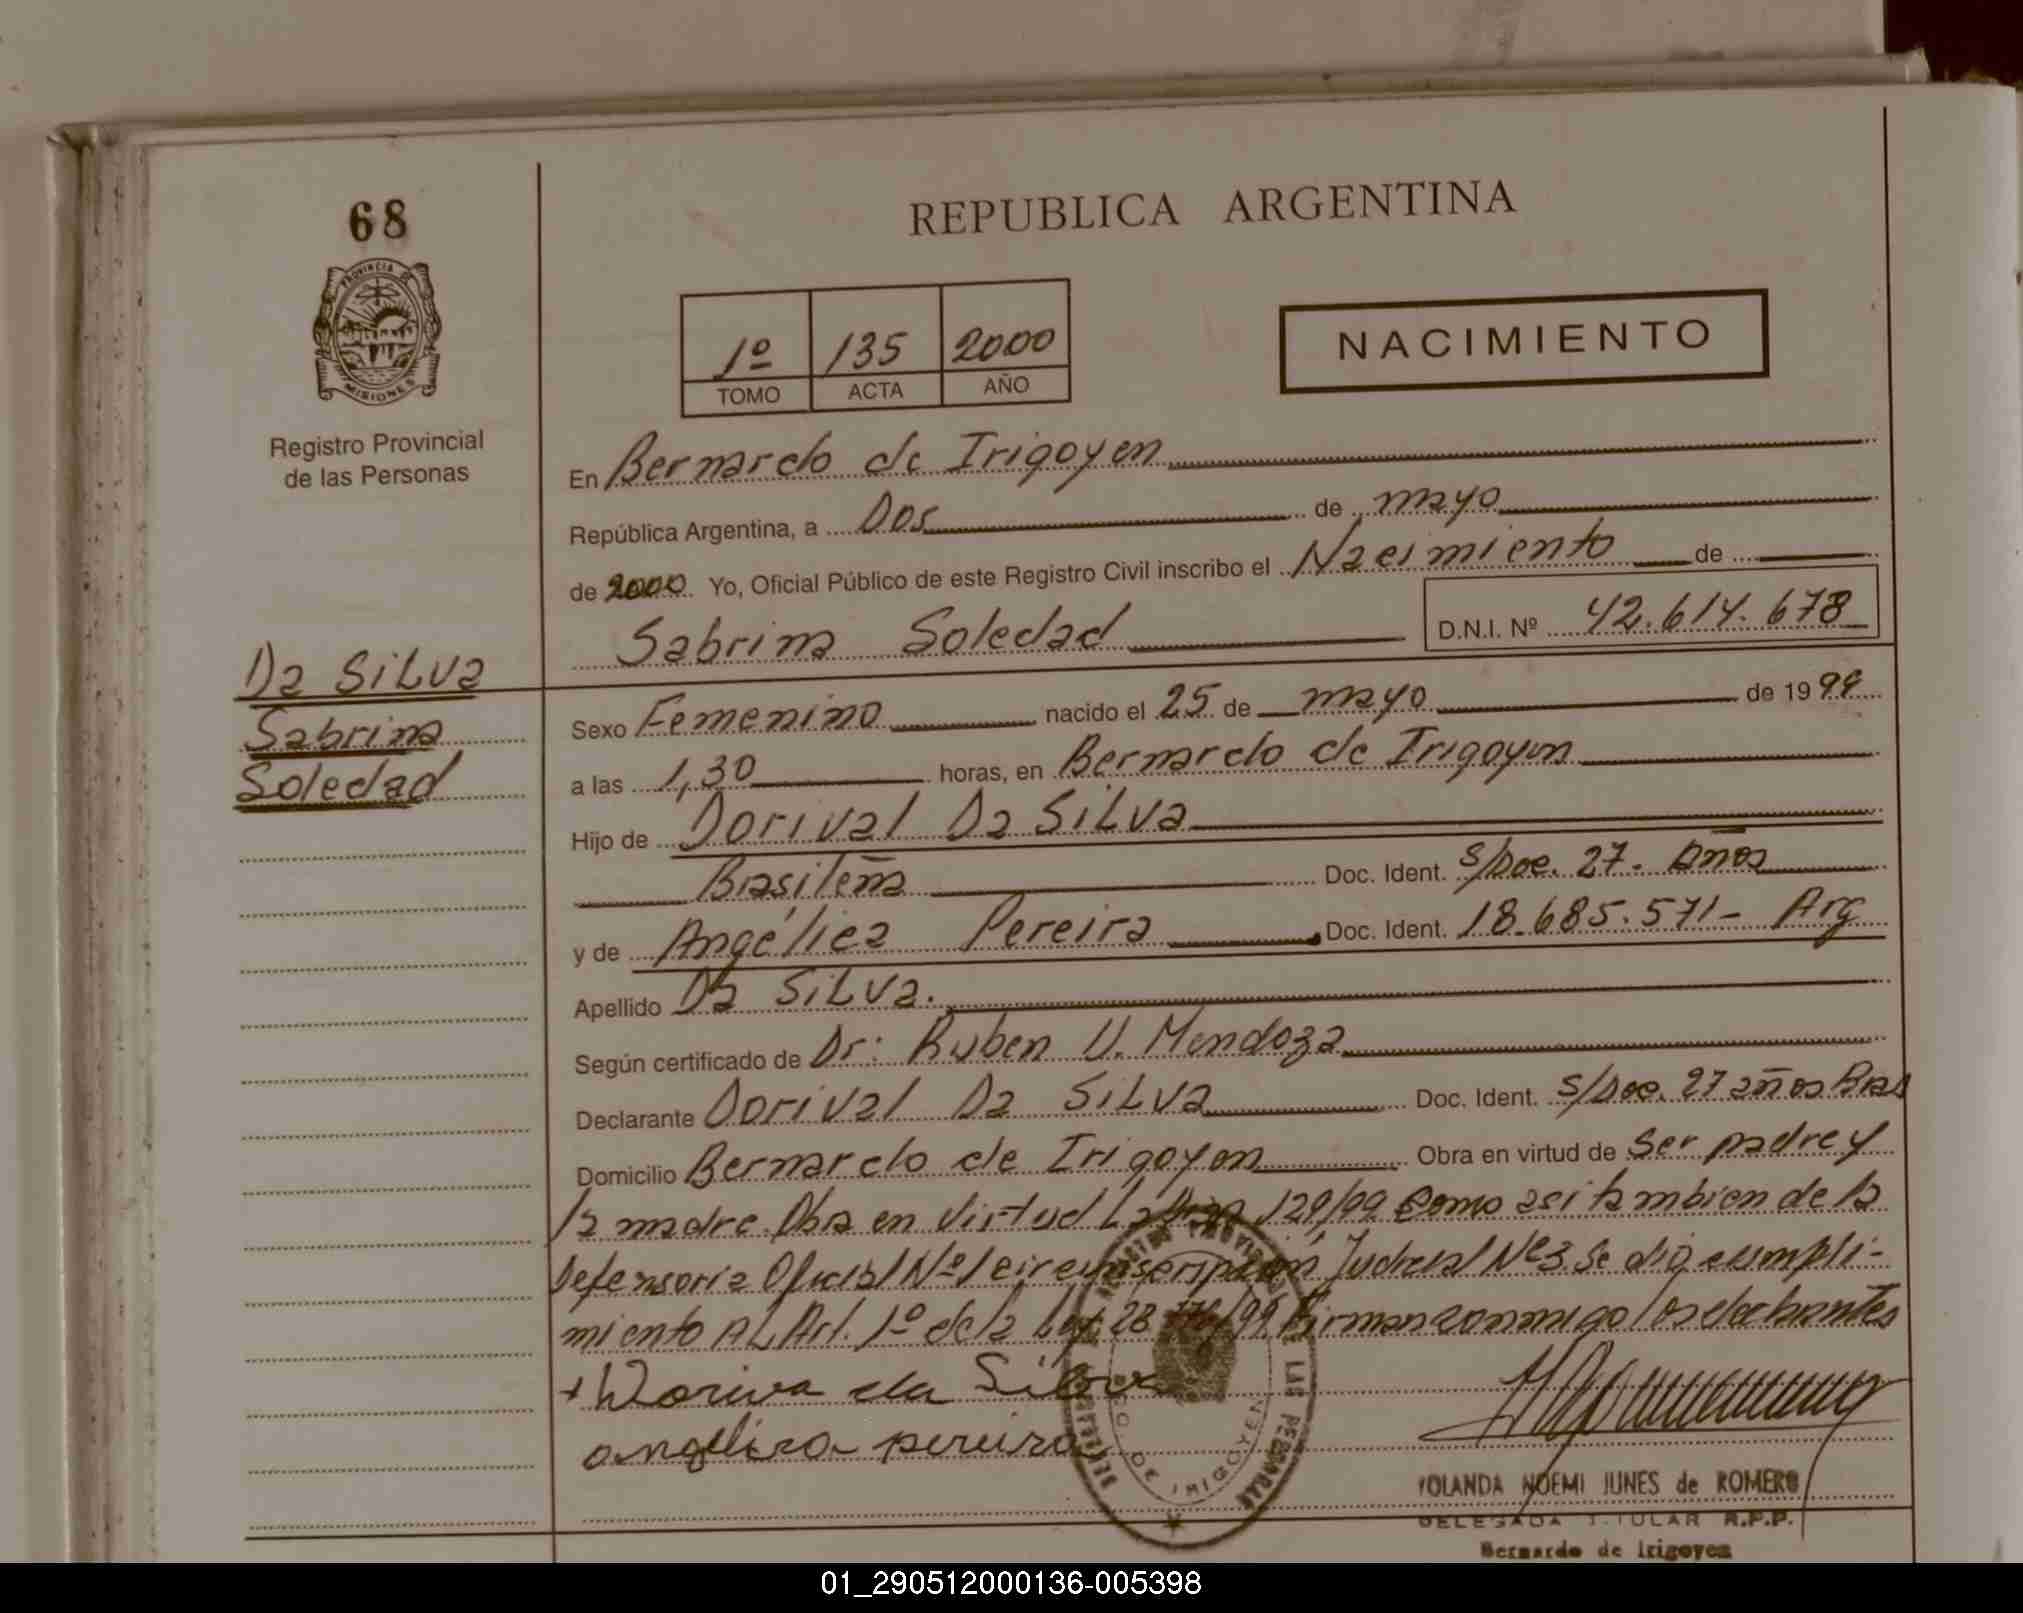 68
REPUBLICA ARGENTINA
PROVINCIA DE
MISIONES
Registro Provincial
de las Personas
1º 135 2000
TOMO ACTA AÑO
NACIMIENTO
En Bernardo de Irigoyen
República Argentina, a Dos de mayo
de 2000 Yo, Oficial Público de este Registro Civil inscribo el Nacimiento de
Sabrina Soledad D.N.I. Nº 42.614.678
Da Silva
Sabrina
Soledad
Sexo Femenino nacido el 25 de mayo de 1999
a las 1,30 horas, en Bernardo de Irigoyen
Hijo de Dorival Da Silva
Brasileña Doc. Ident. s/Doc. 27- Años
y de Angélica Pereira Doc. Ident. 18.685.571- Arg
Apellido Da Silva.
Según certificado de Dr: Ruben U. Mendoza
Declarante Dorival Da Silva Doc. Ident. s/Doc. 27 años Bras
Domicilio Bernardo de Irigoyen Obra en virtud de Ser padre y
la madre. Obra en Virtud 129/99 Como asi tambien de la
Defensoria Oficial Nº1 circunscripcion Judicial Nº3 Se dio cumpli-
miento AL Art. 1º de la Ley 28 /99 Firman conmigo los declarantes
+ Doriva da Silva
angelica pereira
REGISTRO PROVINCIAL DE LAS PERSONAS
BDO. DE IRIGOYEN
YOLANDA NOEMI JUNES de ROMERO
DELEGADA TITULAR R.P.P.
Bernardo de Irigoyen
01_290512000136-005398